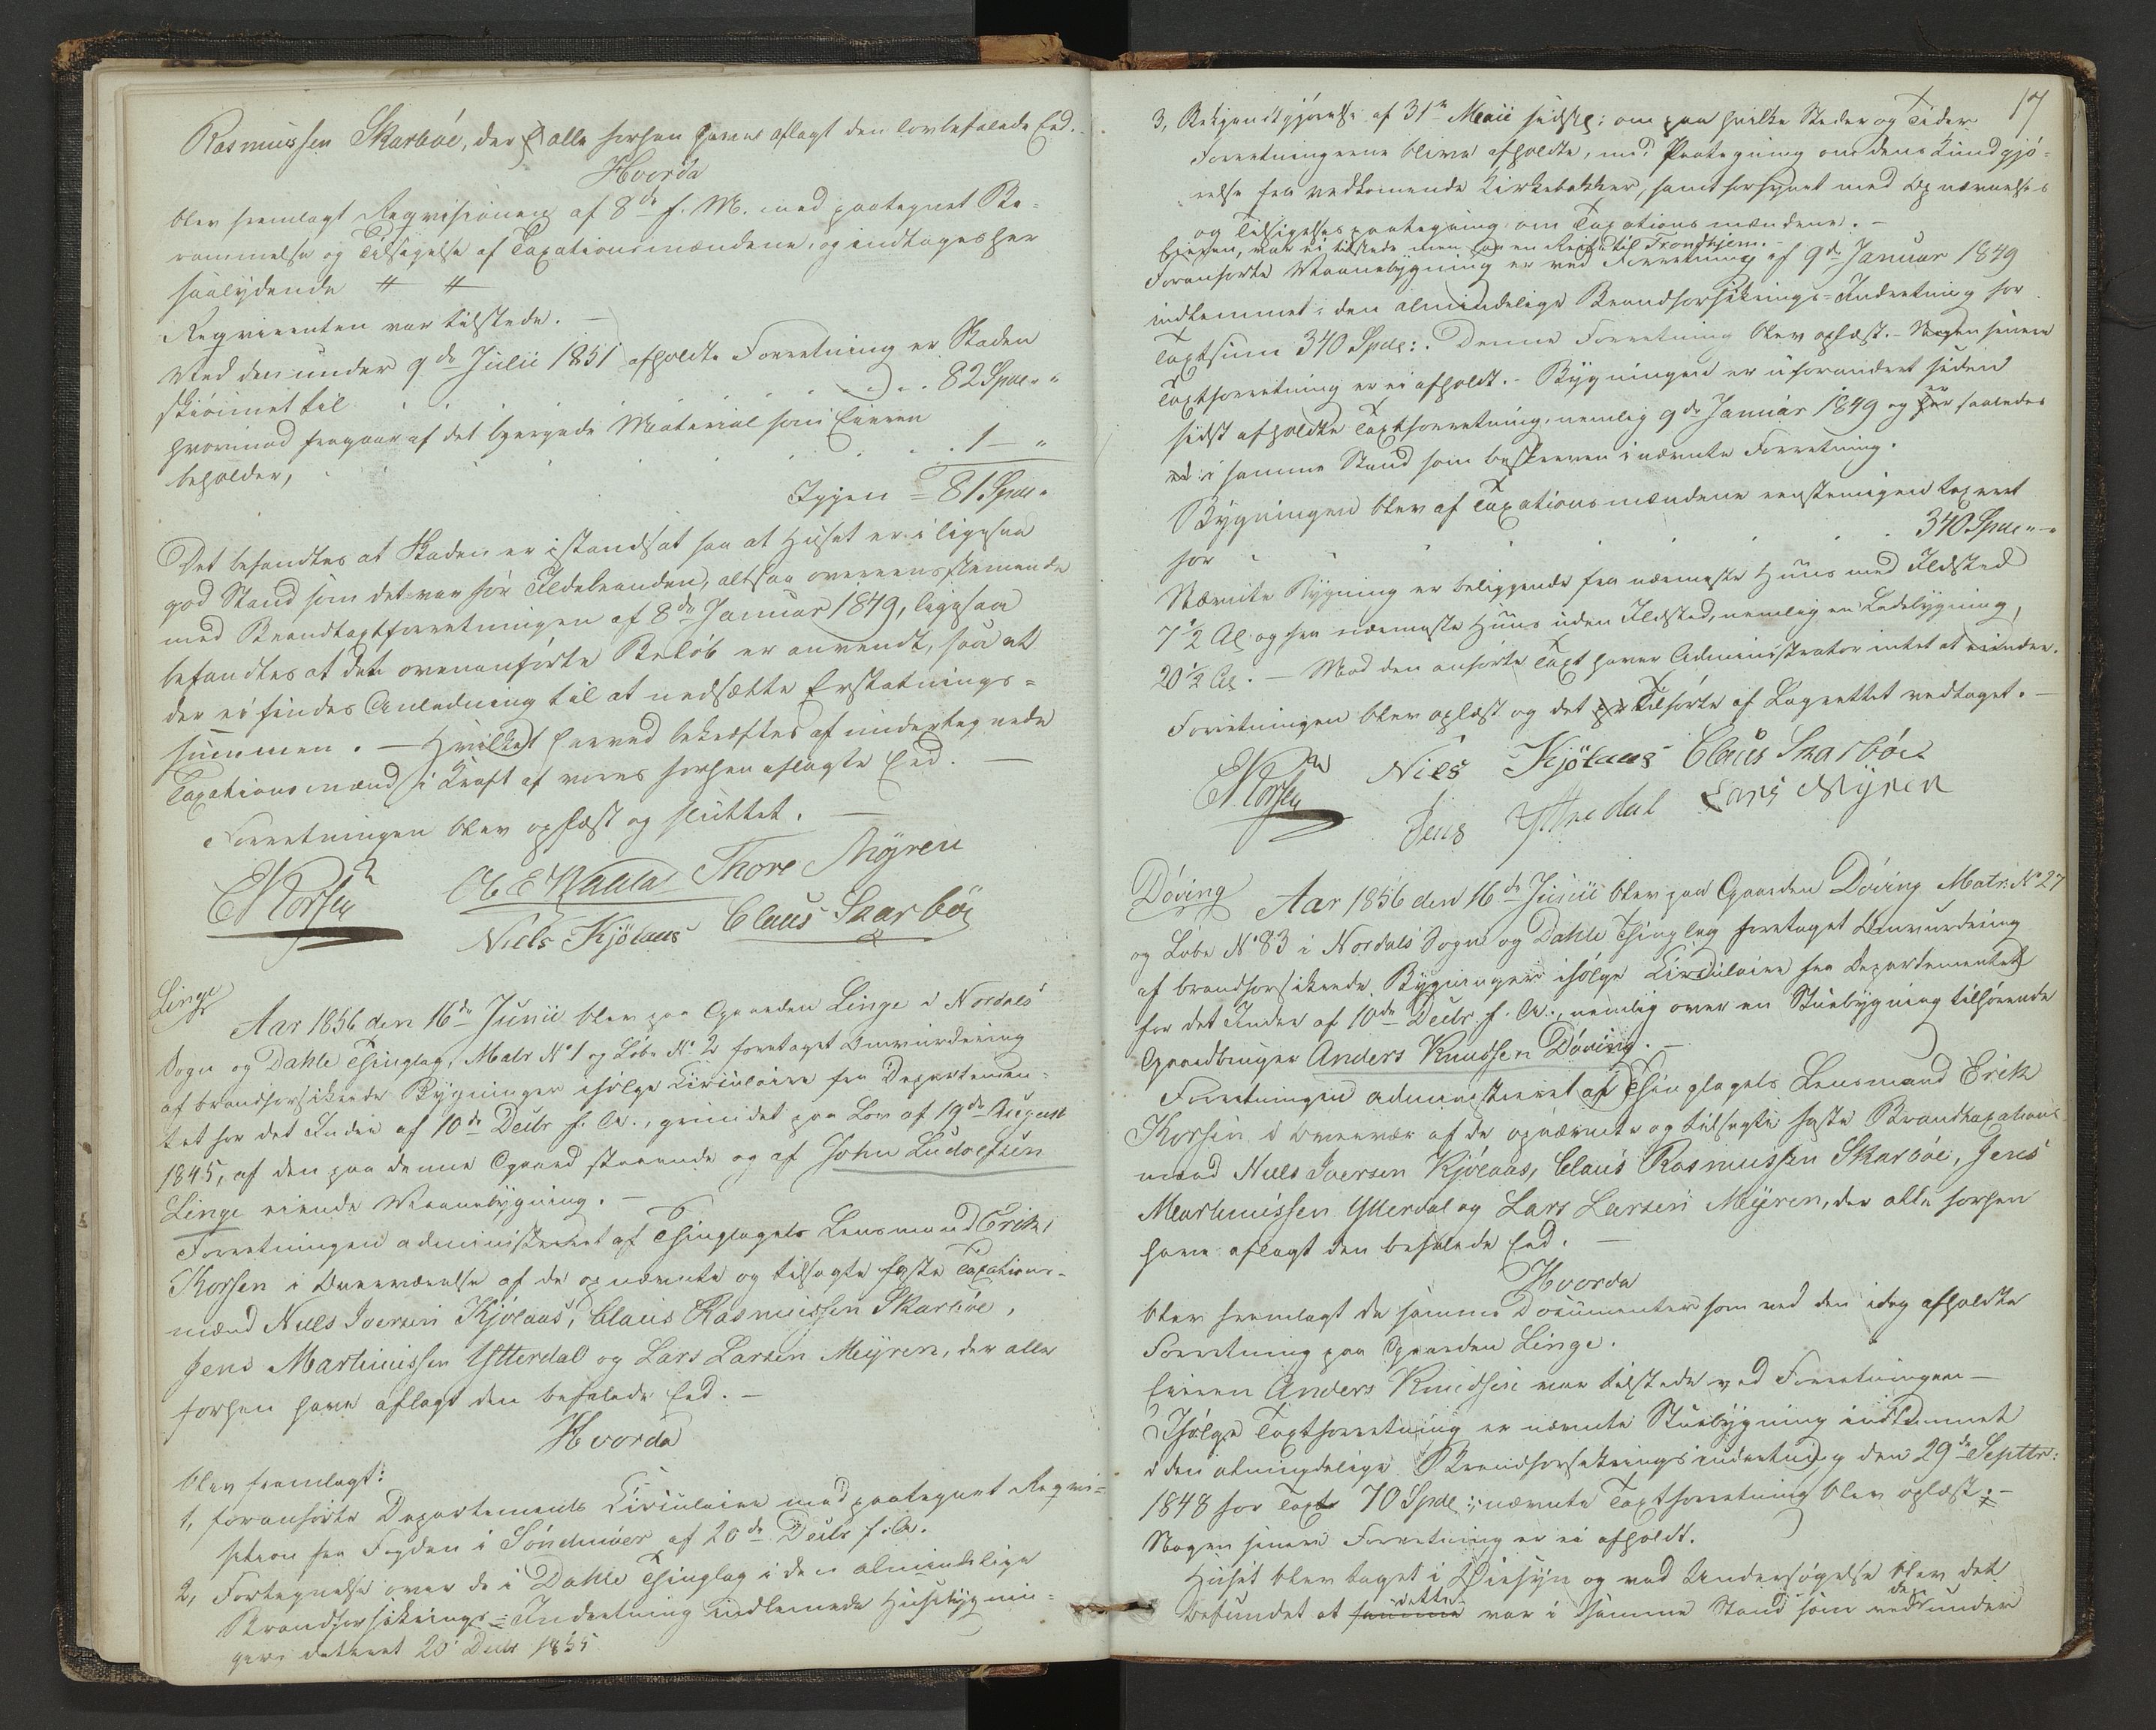 Rasmussen Skarböe, der alle forhen haver aflagt den lovbefalede Eed.
Hvorda
blev fremlagt Reqvisitionen af 8de f. M. med paategnet Be-
rammelse og Tilsigelse af Taxationsmændene, og indtages her
saalydende " "
Reqvirenten var tilstede. —
Ved den under 9de Julii 1851 afholdte Forretning er Skaden
skiönnet til . . . . . 82 Spdlr "
hvorimod fragaar af det bjergede Material som Eieren
beholder, . . . . . . 1 — "
Igjen = 81 Spdlr "
Det befandtes at Skaden er istandsat saa at Huset er i ligesaa
god Stand som det var för Ildebranden, altsaa overeensstemmende
med Brandtaxtforretningen af 8de Januar 1849, ligesaa
befandtes at det ovenanförte Belöb er anvendt, saa at
der ei findes Anledning til at nedsætte Erstatnings-
summen. — Hvilket herved bekræftes af undertegnede
Taxationsmænd i Kraft af vores forhen aflagte Eed. —
Forretningen blev oplæst og sluttet. —
E Korsen Thore Myren
Niels Kjölaas Claus Skarböe
Linge
Aar 1856 den 16de Junii blev paa Gaarden Linge i Nordals
Sogn og Dahle Thinglag, Matr No 1 og Löbe No 2 foretaget Omvurdering
af brandforsikrede Bygninger ifölge Circulaire fra Departemen-
tet for det Indre af 10de Decbr f. A., grundet paa Lov af 19de August
1845, af den paa denne Gaard staaende og af John Ludvigsen
Linge eiende Vaanebygning. —
Forretningen administreret af Thinglagets Lensmand Erik
Korsen i Overværelse af de opnævnte og tilsagte faste Taxations-
mænd Niels Iversen Kjölaas, Claus Rasmussen Skarböe,
Jens Martinussen Ytterdal og Lars Larsen Myren, der alle
forhen have aflagt den befalede Eed. —
Hvorda
blev fremlagt:
1, foranförte Departements Circulaire med paategnet Reqvi-
sition fra Fogden i Söndmöer af 20de Decbr f. A.
2, Fortegnelse over de i Dahle Thinglag i den almindelige
Brandforsikrings-Indretning indlemmede Huusbygnin-
ger dateret 20 Decbr 1855
17
3, Bekjendtgjörelse af 31te Maii sidstl: om paa hvilke Steder og Tider
Forretningerne bliver afholdte, med Paategning om dens Kundgjö-
relse fra vedkommende Kirkebakker, samt forsynet med Opnævnelses
og Tilsigelsespaategning om Taxationsmændene. —
Eieren, var ei tilstede men paa en Reise til Trondhjem. —
Foranförte Vaanebygning er ved Forretning af 9de Januar 1849
indlemmet i den almindelige Brandforsikrings-Indretning for
Taxtsum 340 Spdl:. Denne Forretning blev oplæst. — Nogen senere
Taxtforretning er ei afholdt. — Bygningen er uforandret siden
sidst afholdte Taxtforretning, nemlig 9de Januar 1849 og er saaledes
i samme Stand som beskreven i nævnte Forretning.
Bygningen blev af Taxationsmændene eenstemmigen taxeret
for . . . . . . 340 Spdlr " - "
Nævnte Bygning er beliggende fra nærmeste Huus med Ildsted
7 1/2 Al. og fra nærmeste Huus uden Ildsted, nemlig en Ladebygning,
20 1/2 Al. — Mod den anförte Taxt haver Administrator intet at erindre.
Forretningen blev oplæst og det Tilförte af Lagrettet vedtaget. —
E Korsen Niels Kjölaas Claus Skarböe
Jens Ytredal Lars Myren
Döving
Aar 1856 den 16de Junii blev paa Gaarden Döving Matr. No 27
og Löbe No 83 i Nordals Sogn og Dahle Thinglag foretaget Omvurdering
af brandforsikrede Bygninger ifölge Circulaire fra Departementet
for det Indre af 10de Decbr f. A., nemlig over en Stuebygning tilhörende
Gaardbruger Anders Knudsen Döving. —
Forretningen administreret af Thinglagets Lensmand Erik
Korsen i Overvær af de opnævnte og tilsagte faste Brandtaxations
mænd Niels Iversen Kjölaas, Claus Rasmussen Skarböe, Jens
Martinussen Ytterdal og Lars Larsen Myren, der alle forhen
have aflagt den befalede Eed. —
Hvorda
blev fremlagt de samme Documenter som ved den idag afholdte
Forretning paa Gaarden Linge.
Eieren Anders Knudsen var tilstede ved Forretningen —
Ifölge Taxtforretning er nævnte Stuebygning indlemmet
i den almindelige Brandforsikringsindretning den 29de Septbr:
1848 for Taxt 70 Spdl:, nævnte Taxtforretning blev oplæst. —
Nogen senere Forretning er ei afholdt.
Huset blev taget i Öiesyn og ved Undersögelse blev det
befundet at samme dette var i samme Stand som ved den under